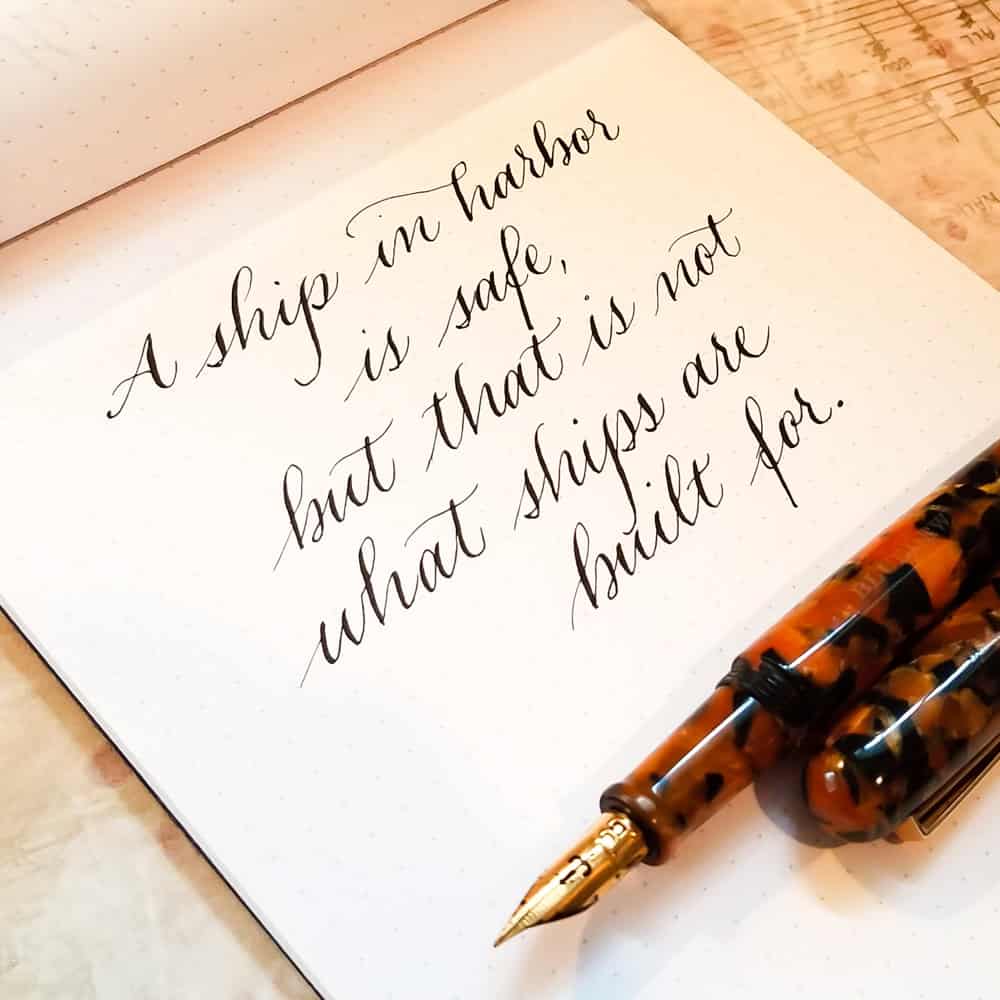 A ship in harbor
is safe,
but that is not
what ships are
built for.
ALL